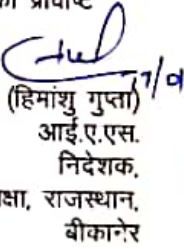 की प्रविष्टि
(हिमांशु गुप्ता)
आई.ए.एस.
निदेशक,
क्षा, राजस्थान,
बीकानेर